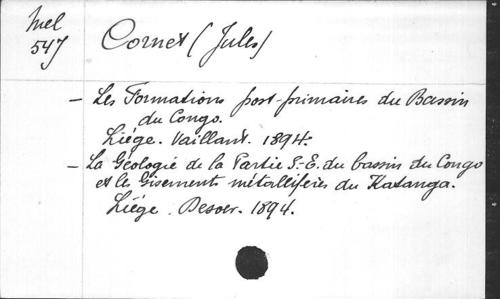 Mel
547
Cornet (Jules)
- Les Formations post-primaires du Bassin
du Congo.
Liége. Vaillant. 1894.
- La Géologie de la Partie S.-E. du bassin du Congo
et les Gisements métallifères du Katanga.
Liége. Desoer. 1894.